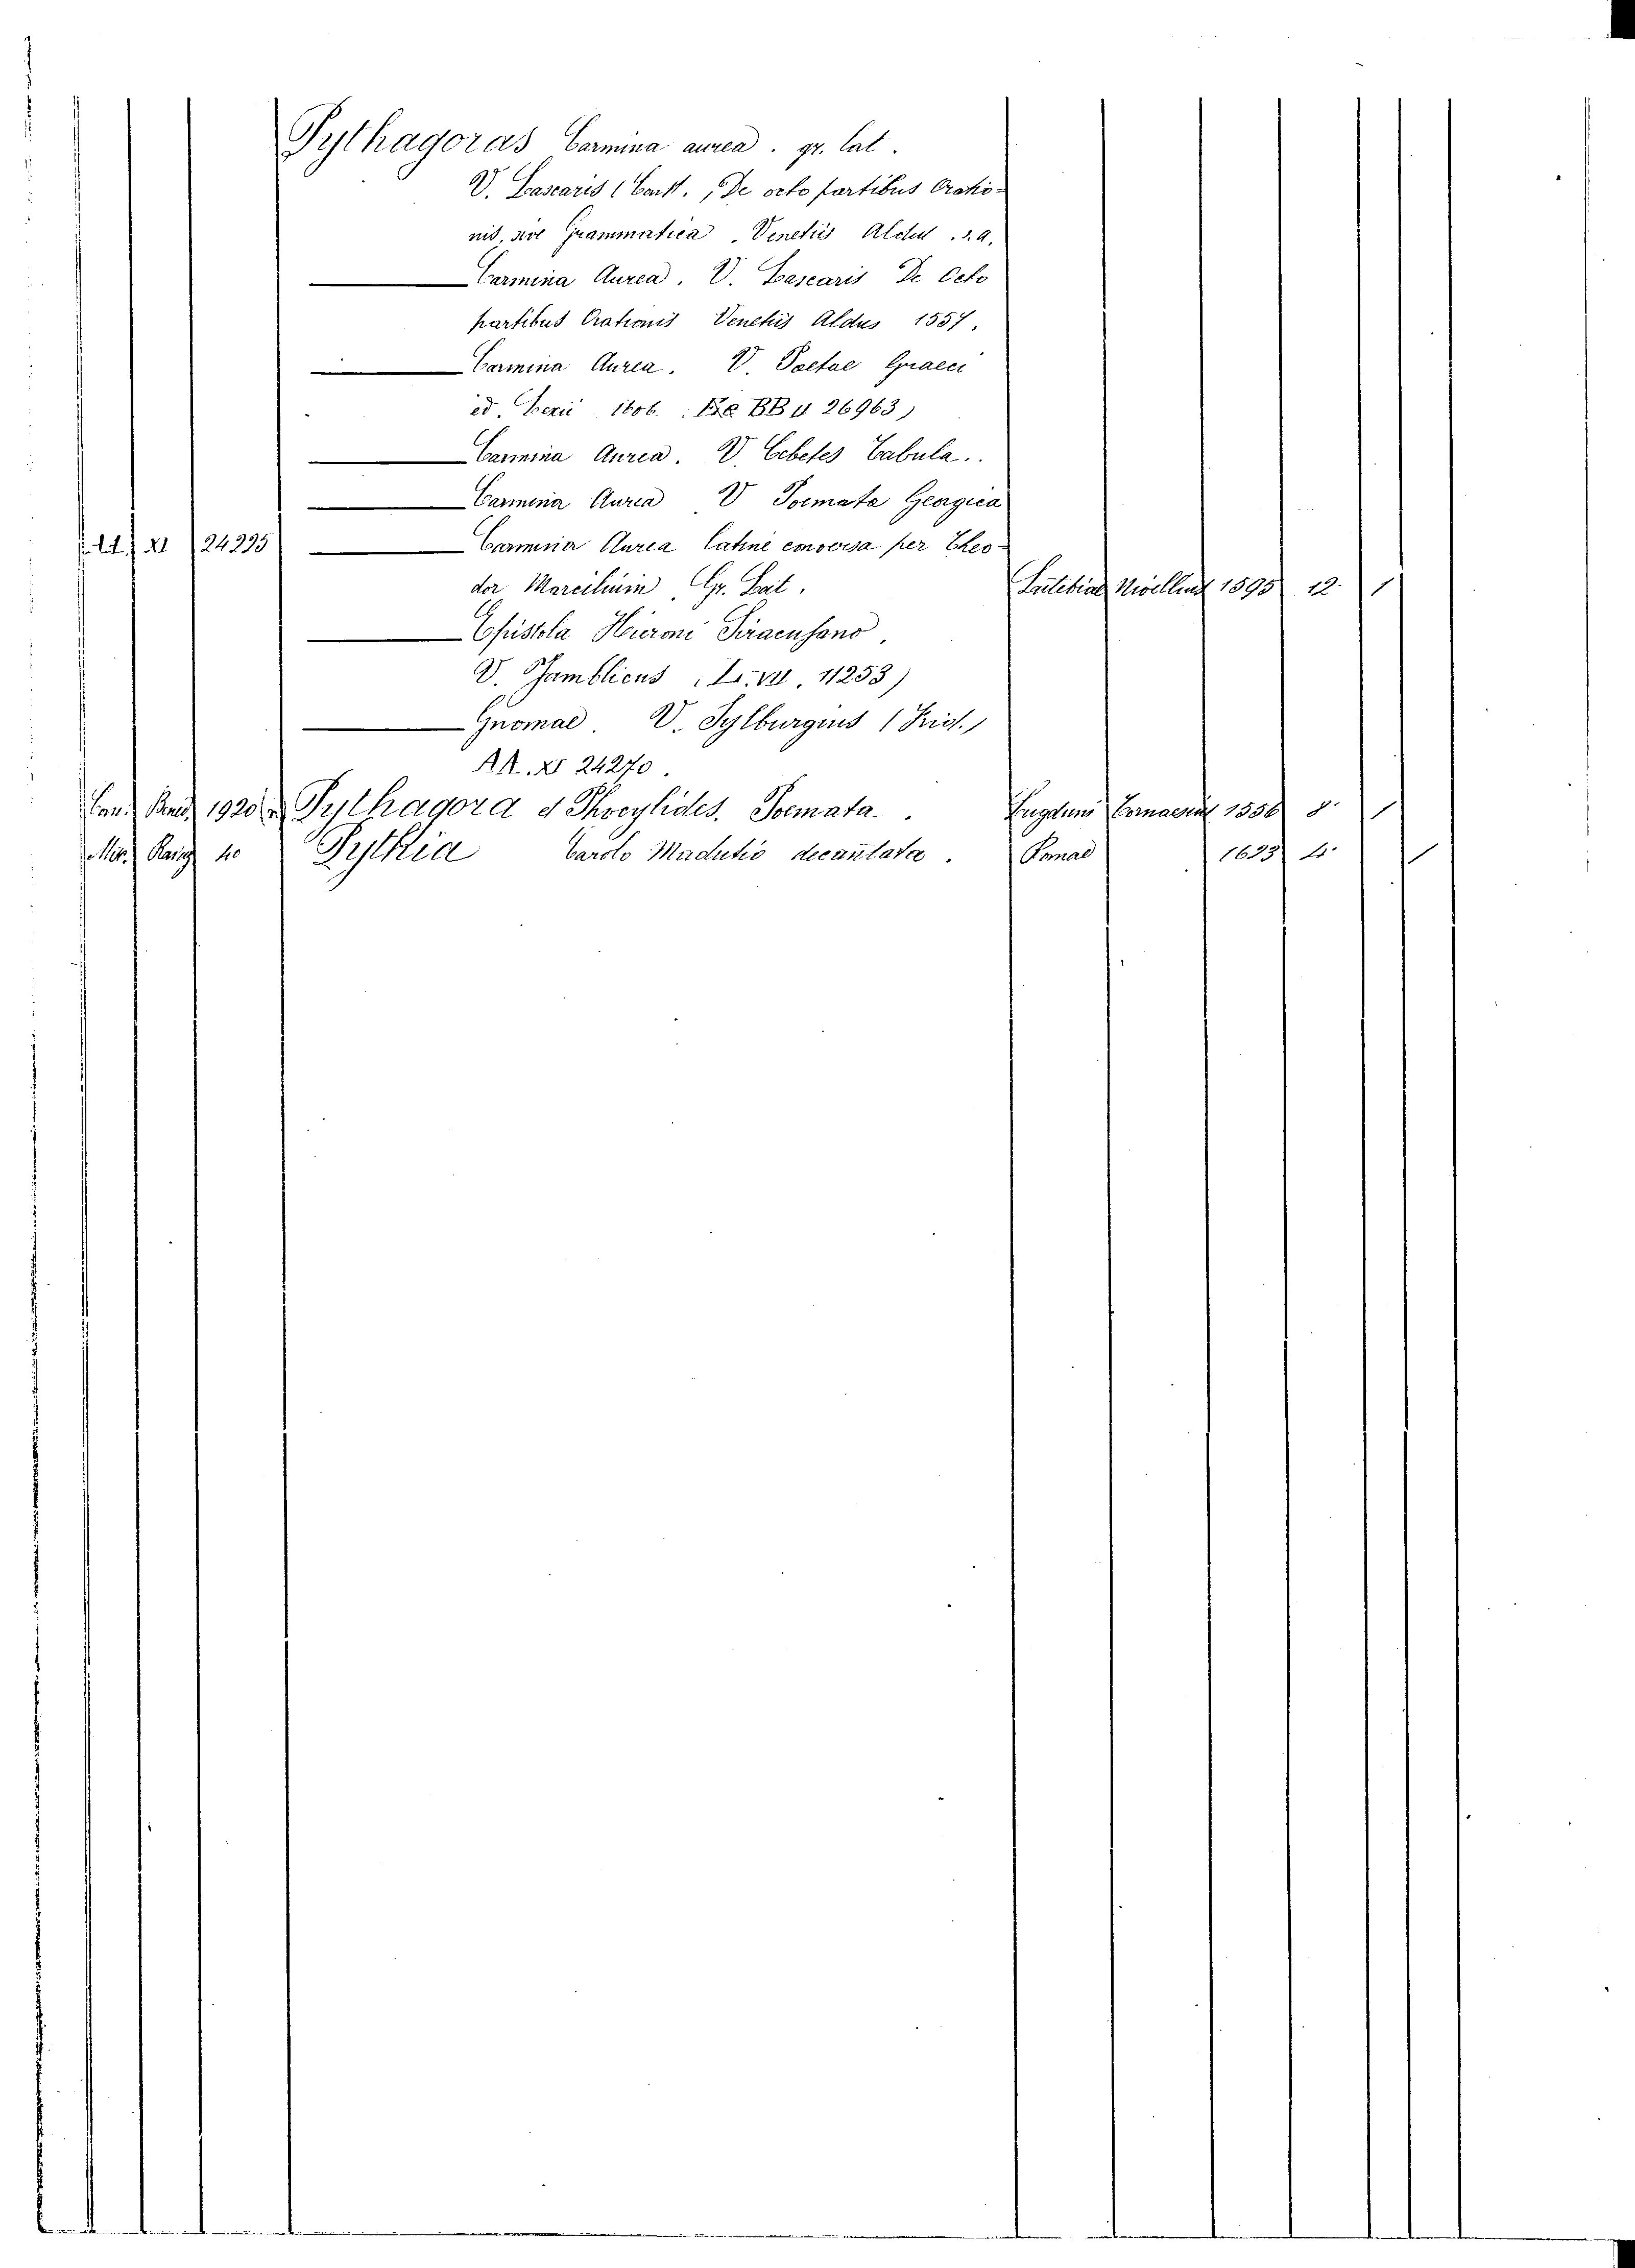 Pythagoras Carmina aurea. gr. lat.
V. Lascaris (Const., De octo partibus Oratio-
nis, sive Grammatica. Venetiis Aldus. s.a.
Carmina Aurea. V. Lascaris De Octo
partibus Orationis Venetiis Aldus 1557,
Carmina Aurea. V. Poetae Graeci
ed. 1606. BB 26963)
Carmina Aurea. V. Cebetes Tabula..
Carmina Aurea V Poemata Georgica
XI 24295 Carmina Aurea latine conversa per Theo-
dor Marcilium Gr. Lat. Lutetiae Nivellius 1595 12. 1
Epistola Hieroni Siracusano,
V. Jamblicus VII. 11253)
Gnomae. V. Sylburgius (Frid.)
AA. XI 24270.
1920 Pythagora et Phocylides. Poemata. Lugduni 1556 8° 1
Mis. 40 Pythia Carolo Madutio decantata. Romae 1623 4° 1